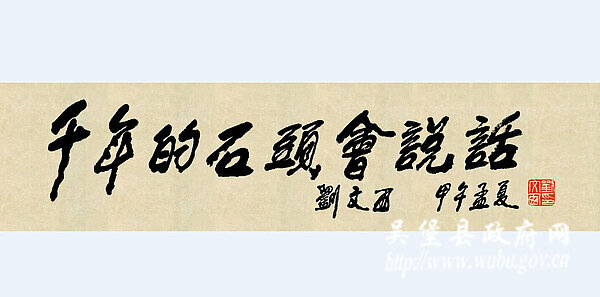 千年的石頭會說話
劉文西 甲午孟夏
吴堡县政府网
http://www.wubu.gov.cn